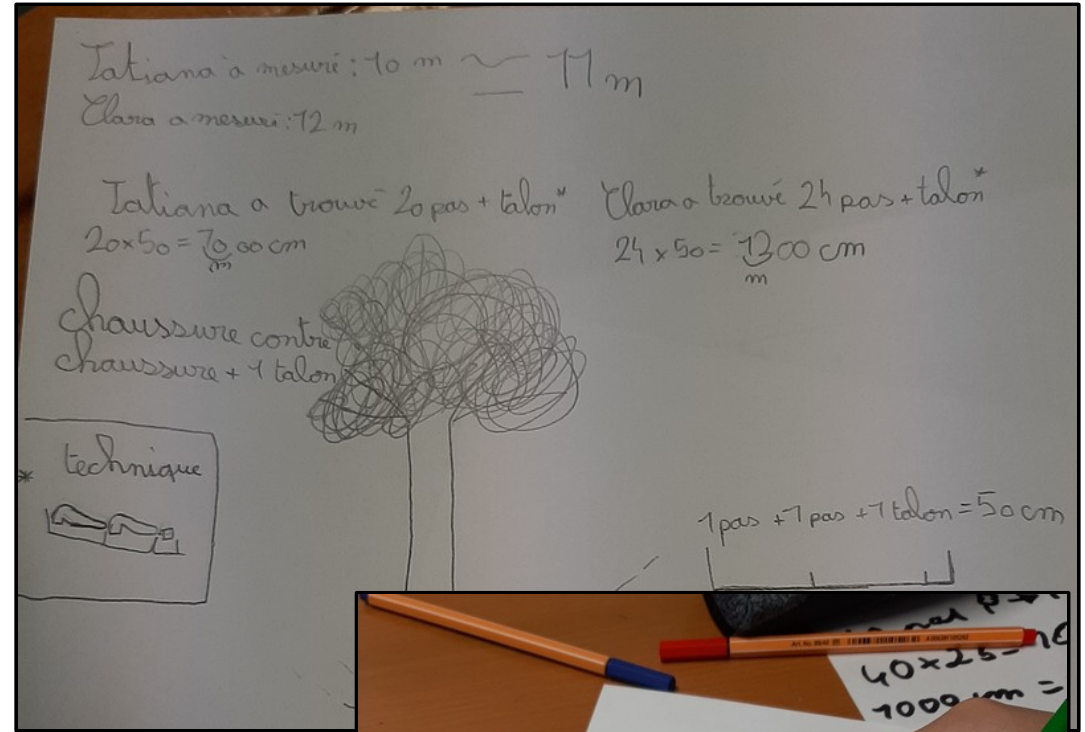 Tatiana à mesuré : 10 m ≃ 11 m
Clara a mesuré : 12 m
Tatiana a trouvé 20 pas + talon*
20×50 = 1000 cm
m
Clara a trouvé 24 pas + talon*
24 × 50 = 1200 cm
m
chaussure contre
chaussure + 1 talon
* technique
1 pas + 1 pas + 1 talon = 50 cm
40×25=
1000 cm =